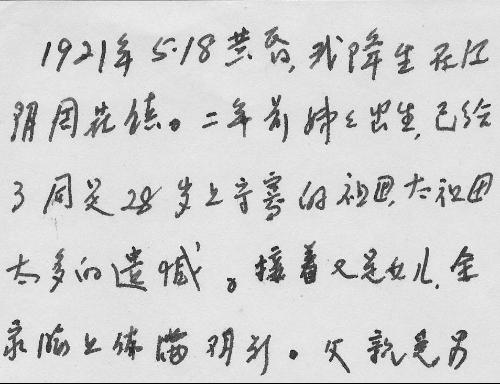 1921年5.18黄昏,我降生在江
阴周庄镇。二年前姊々出生,已给
了同是28岁上守寡的祖母,太祖母
太多的遗憾。接着又是女儿,全
家脸上布满阴影。父亲是男